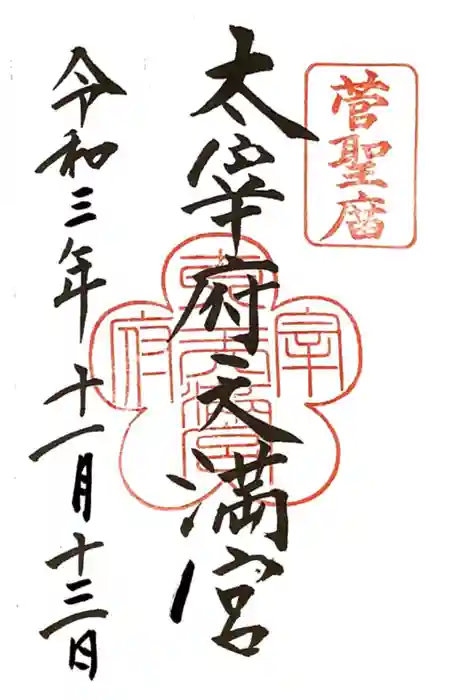 菅聖庿
太宰府天満宮
令和三年十一月十三日